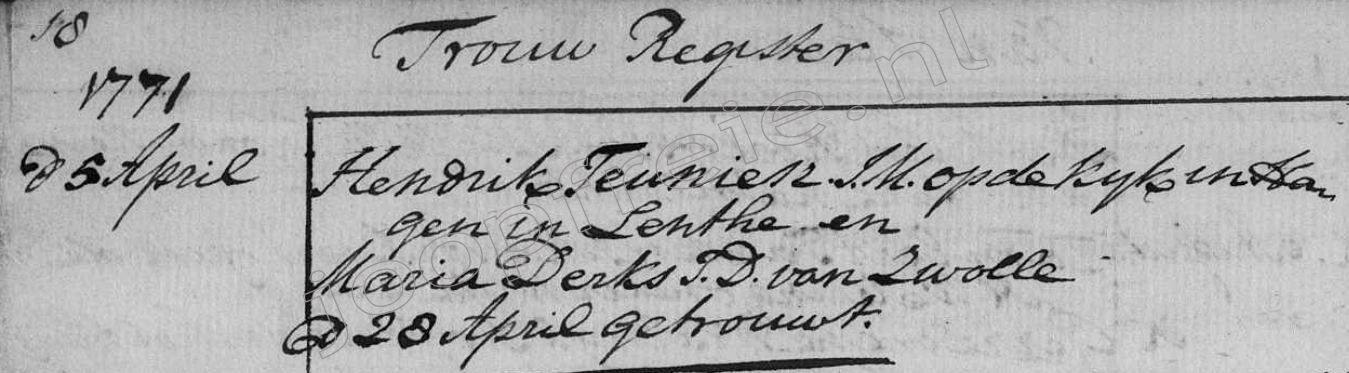 18
Trouw Register
1771
d 5 April
Hendrik Teunisz. J.M. op de Kyk in Ha
gen in Lenthe en
Maria Derks J.D. van Zwolle
d 28 April getrouwt.